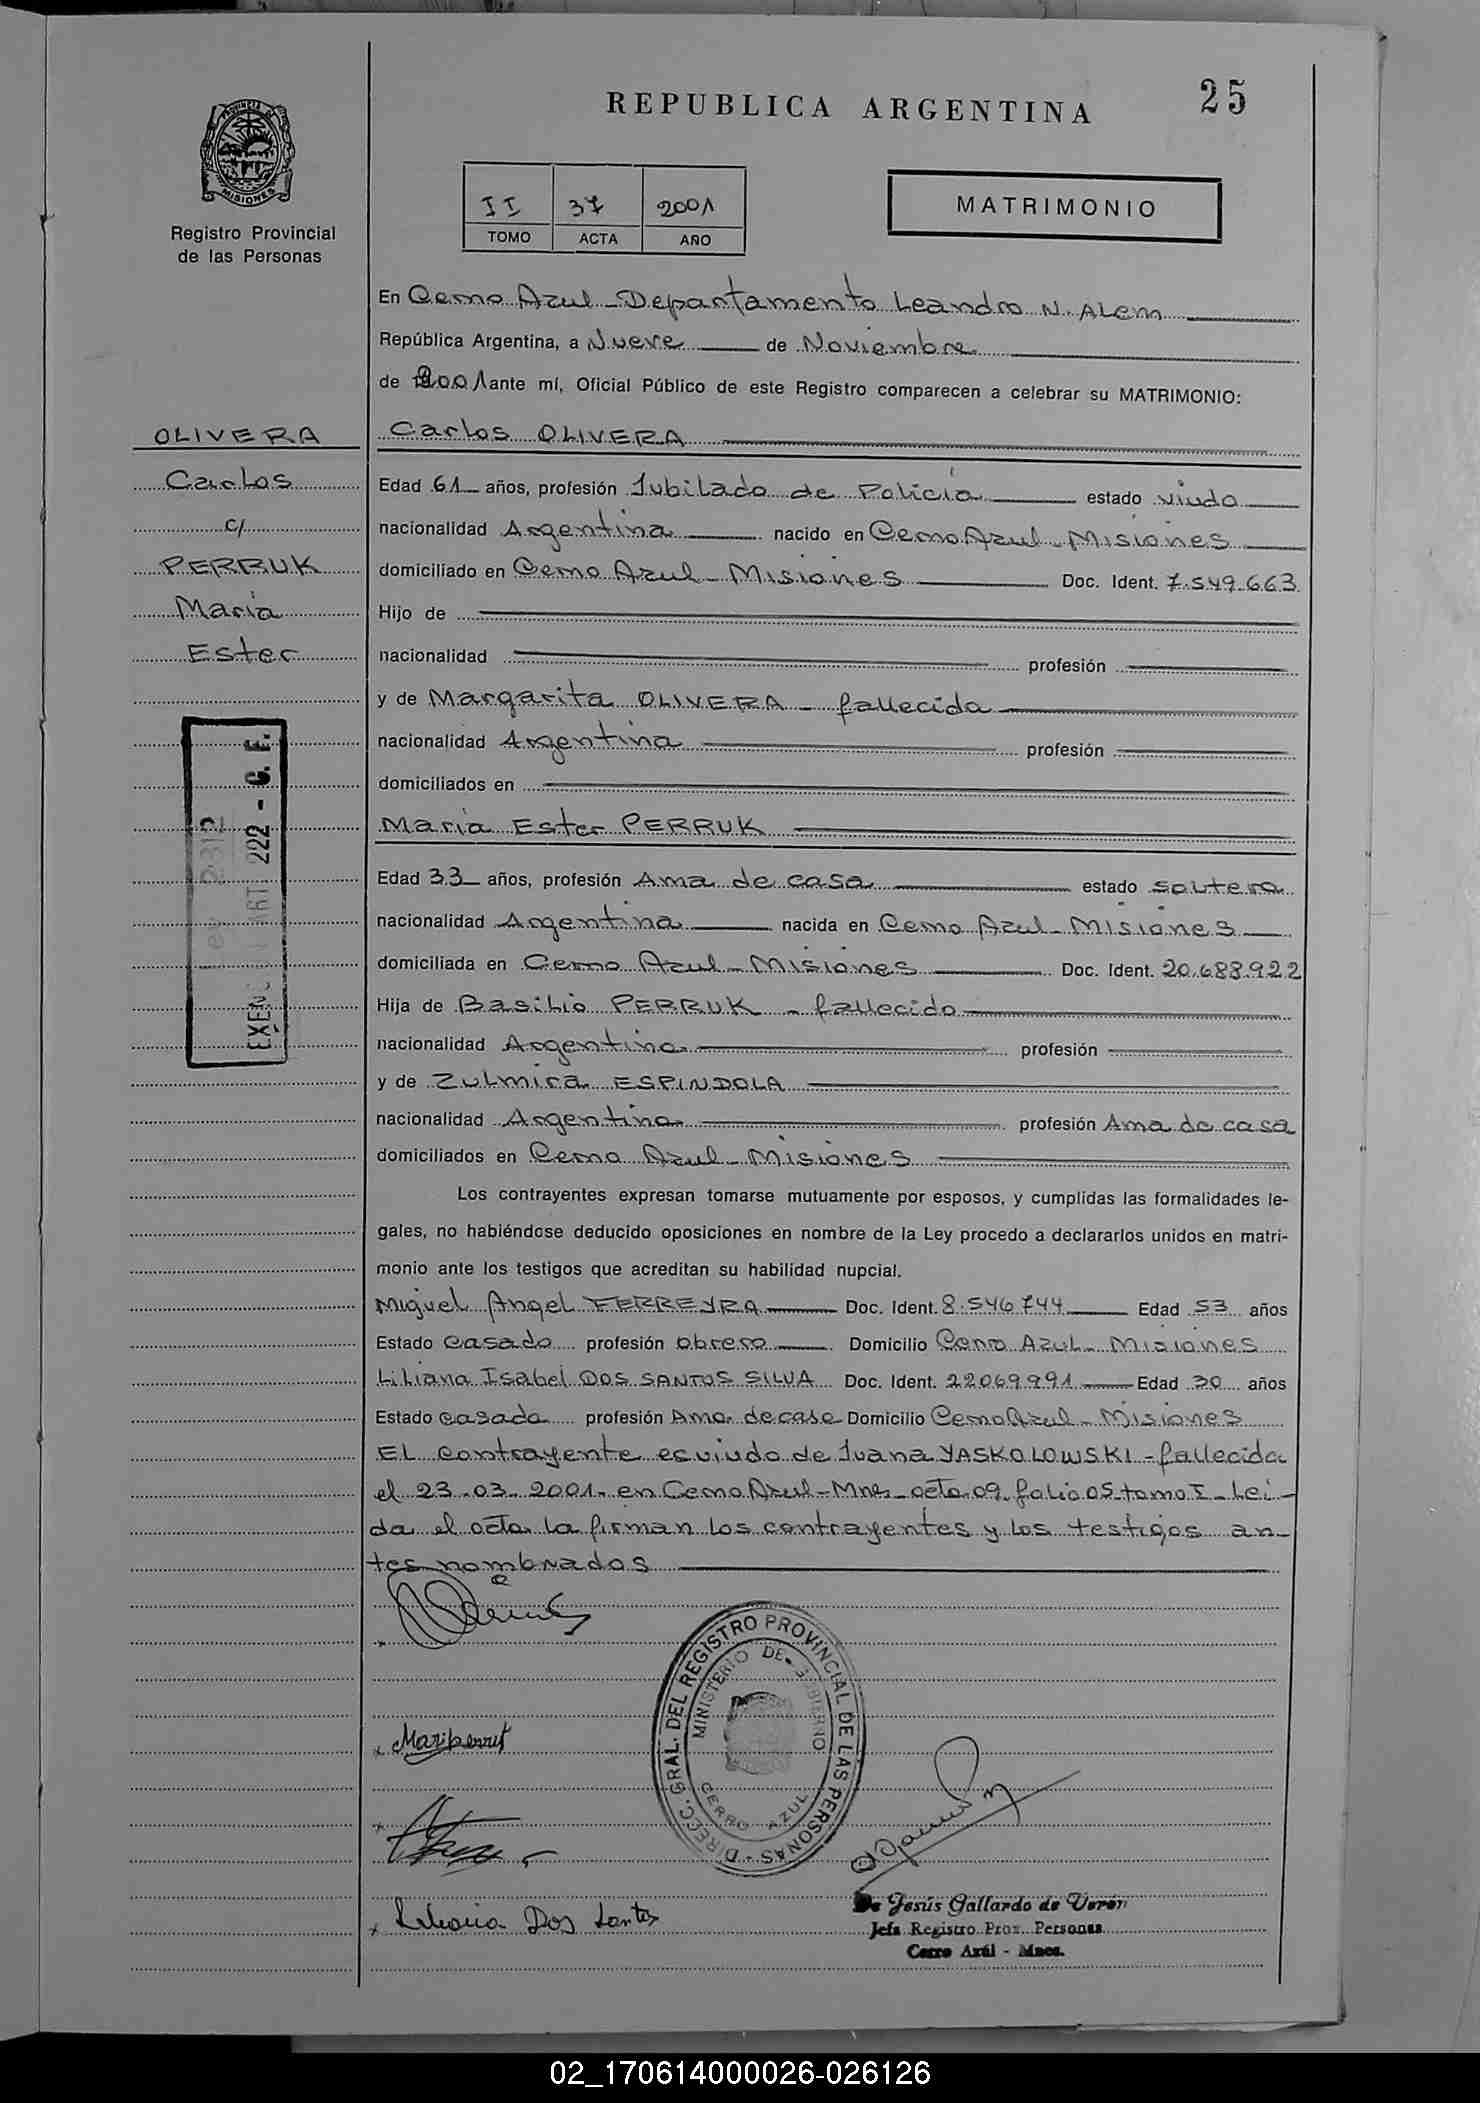 REPUBLICA ARGENTINA
25
PROVINCIA
MISIONES
Registro Provincial
de las Personas
II 37 2001
TOMO ACTA AÑO
MATRIMONIO
En Cerro Azul - Departamento Leandro N. Alem
República Argentina, a Nueve de Noviembre
de 2001 ante mí, Oficial Público de este Registro comparecen a celebrar su MATRIMONIO:
OLIVERA
Carlos
c/
PERRUK
María
Ester
Carlos OLIVERA
Edad 61 años, profesión Jubilado de Policía estado viudo
nacionalidad Argentina nacido en Cerro Azul - Misiones
domiciliado en Cerro Azul - Misiones Doc. Ident. 7.549.663
Hijo de
nacionalidad profesión
y de Margarita OLIVERA - fallecida
nacionalidad Argentina profesión
domiciliados en
María Ester PERRUK
Edad 33 años, profesión Ama de casa estado soltera
nacionalidad Argentina nacida en Cerro Azul - Misiones
domiciliada en Cerro Azul - Misiones Doc. Ident. 20.688.922
Hija de Basilio PERRUK - fallecido
nacionalidad Argentina profesión
y de Zulmira ESPINDOLA
nacionalidad Argentina profesión Ama de casa
domiciliados en Cerro Azul - Misiones
Los contrayentes expresan tomarse mutuamente por esposos, y cumplidas las formalidades le-
gales, no habiéndose deducido oposiciones en nombre de la Ley procedo a declararlos unidos en matri-
monio ante los testigos que acreditan su habilidad nupcial.
Miguel Angel FERREYRA Doc. Ident. 8.546744 Edad 53 años
Estado casado profesión obrero Domicilio Cerro Azul - Misiones
Liliana Isabel DOS SANTOS SILVA Doc. Ident. 22069991 Edad 30 años
Estado casada profesión Ama de casa Domicilio Cerro Azul - Misiones
El contrayente es viudo de Juana YASKOLOWSKI - fallecida
el 23-03-2001- en Cerro Azul - Mnes - acta 09 folio 05 tomo I - Lei-
da el acta la firman los contrayentes y los testigos an-
tes nombrados
222 - C. F.
DIRECC. GRAL. DEL REGISTRO PROVINCIAL DE LAS PERSONAS -
MINISTERIO DE GOBIERNO
CERRO AZUL
Liliana Dos Santos
De Jesús Gallardo de Verón
Jefa Registro Prov. Personas
Cerro Azúl - Mnes.
02_170614000026-026126